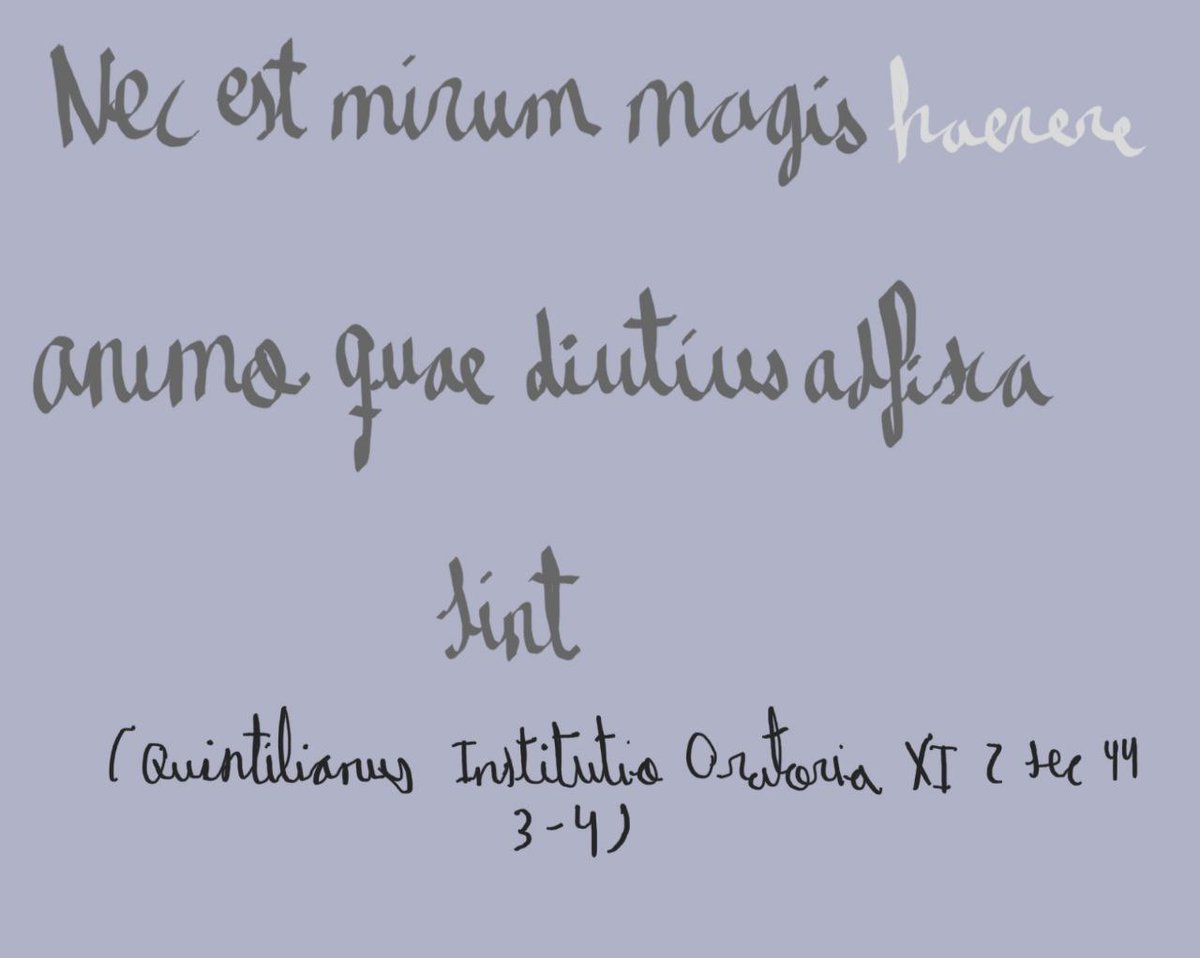 Nec est mirum magis haerere
animo quae diutius adfixa
sint
(Quintilianus Institutio Oratoria XI 2 sec 44
3-4)